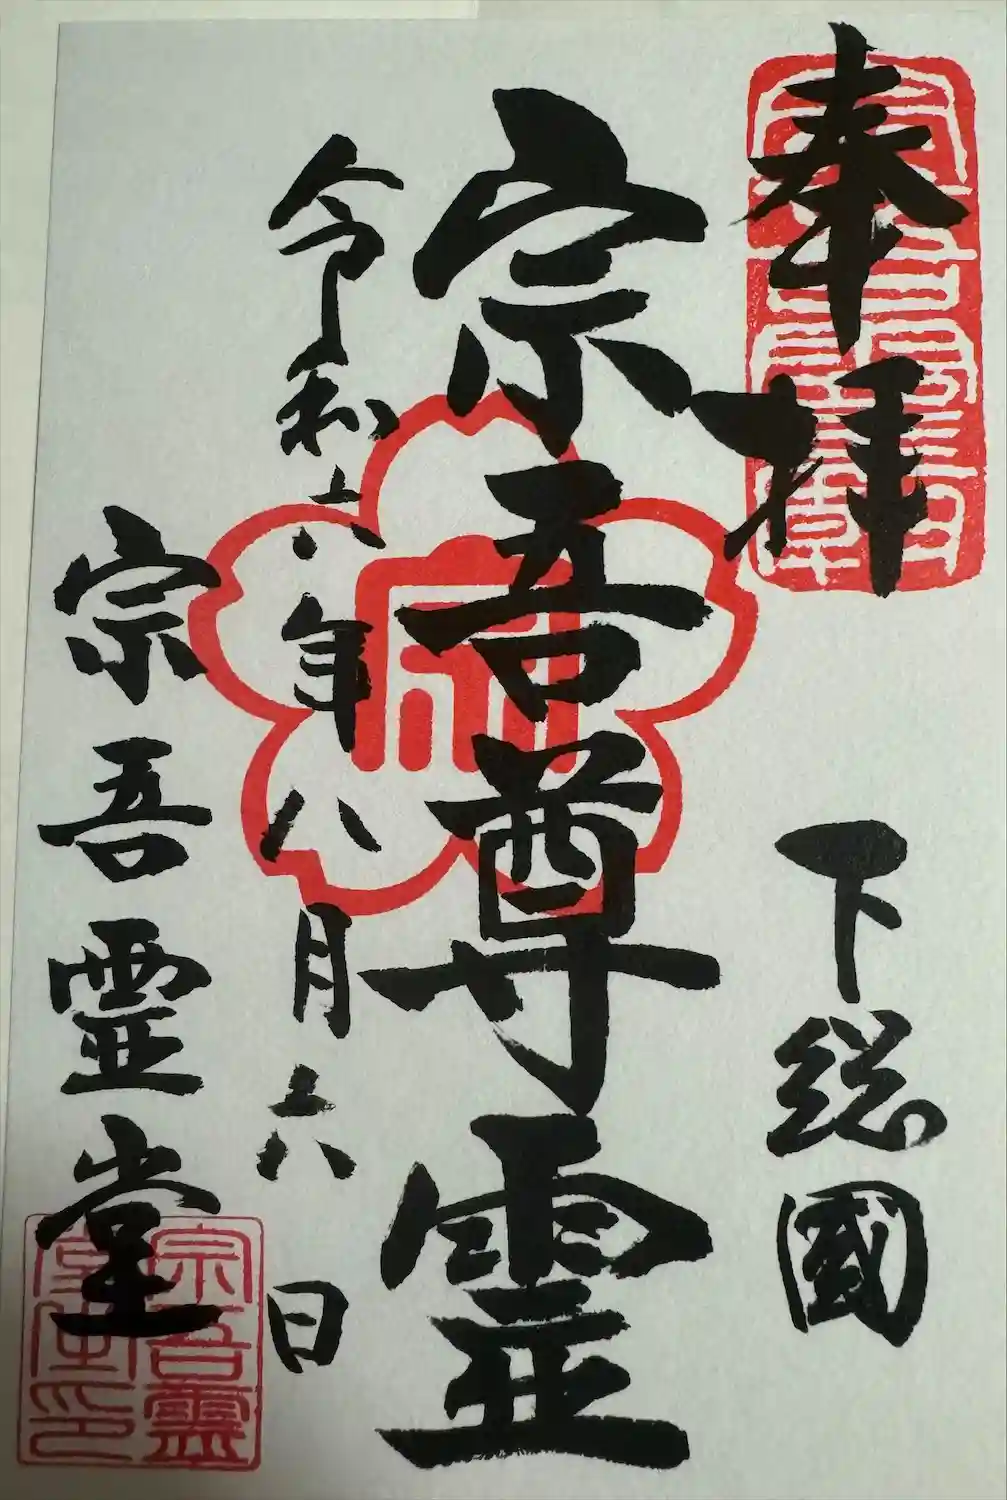 奉拝
下総國
宗吾尊霊
令和六年八月六日
宗吾霊堂
宗吾霊
堂印